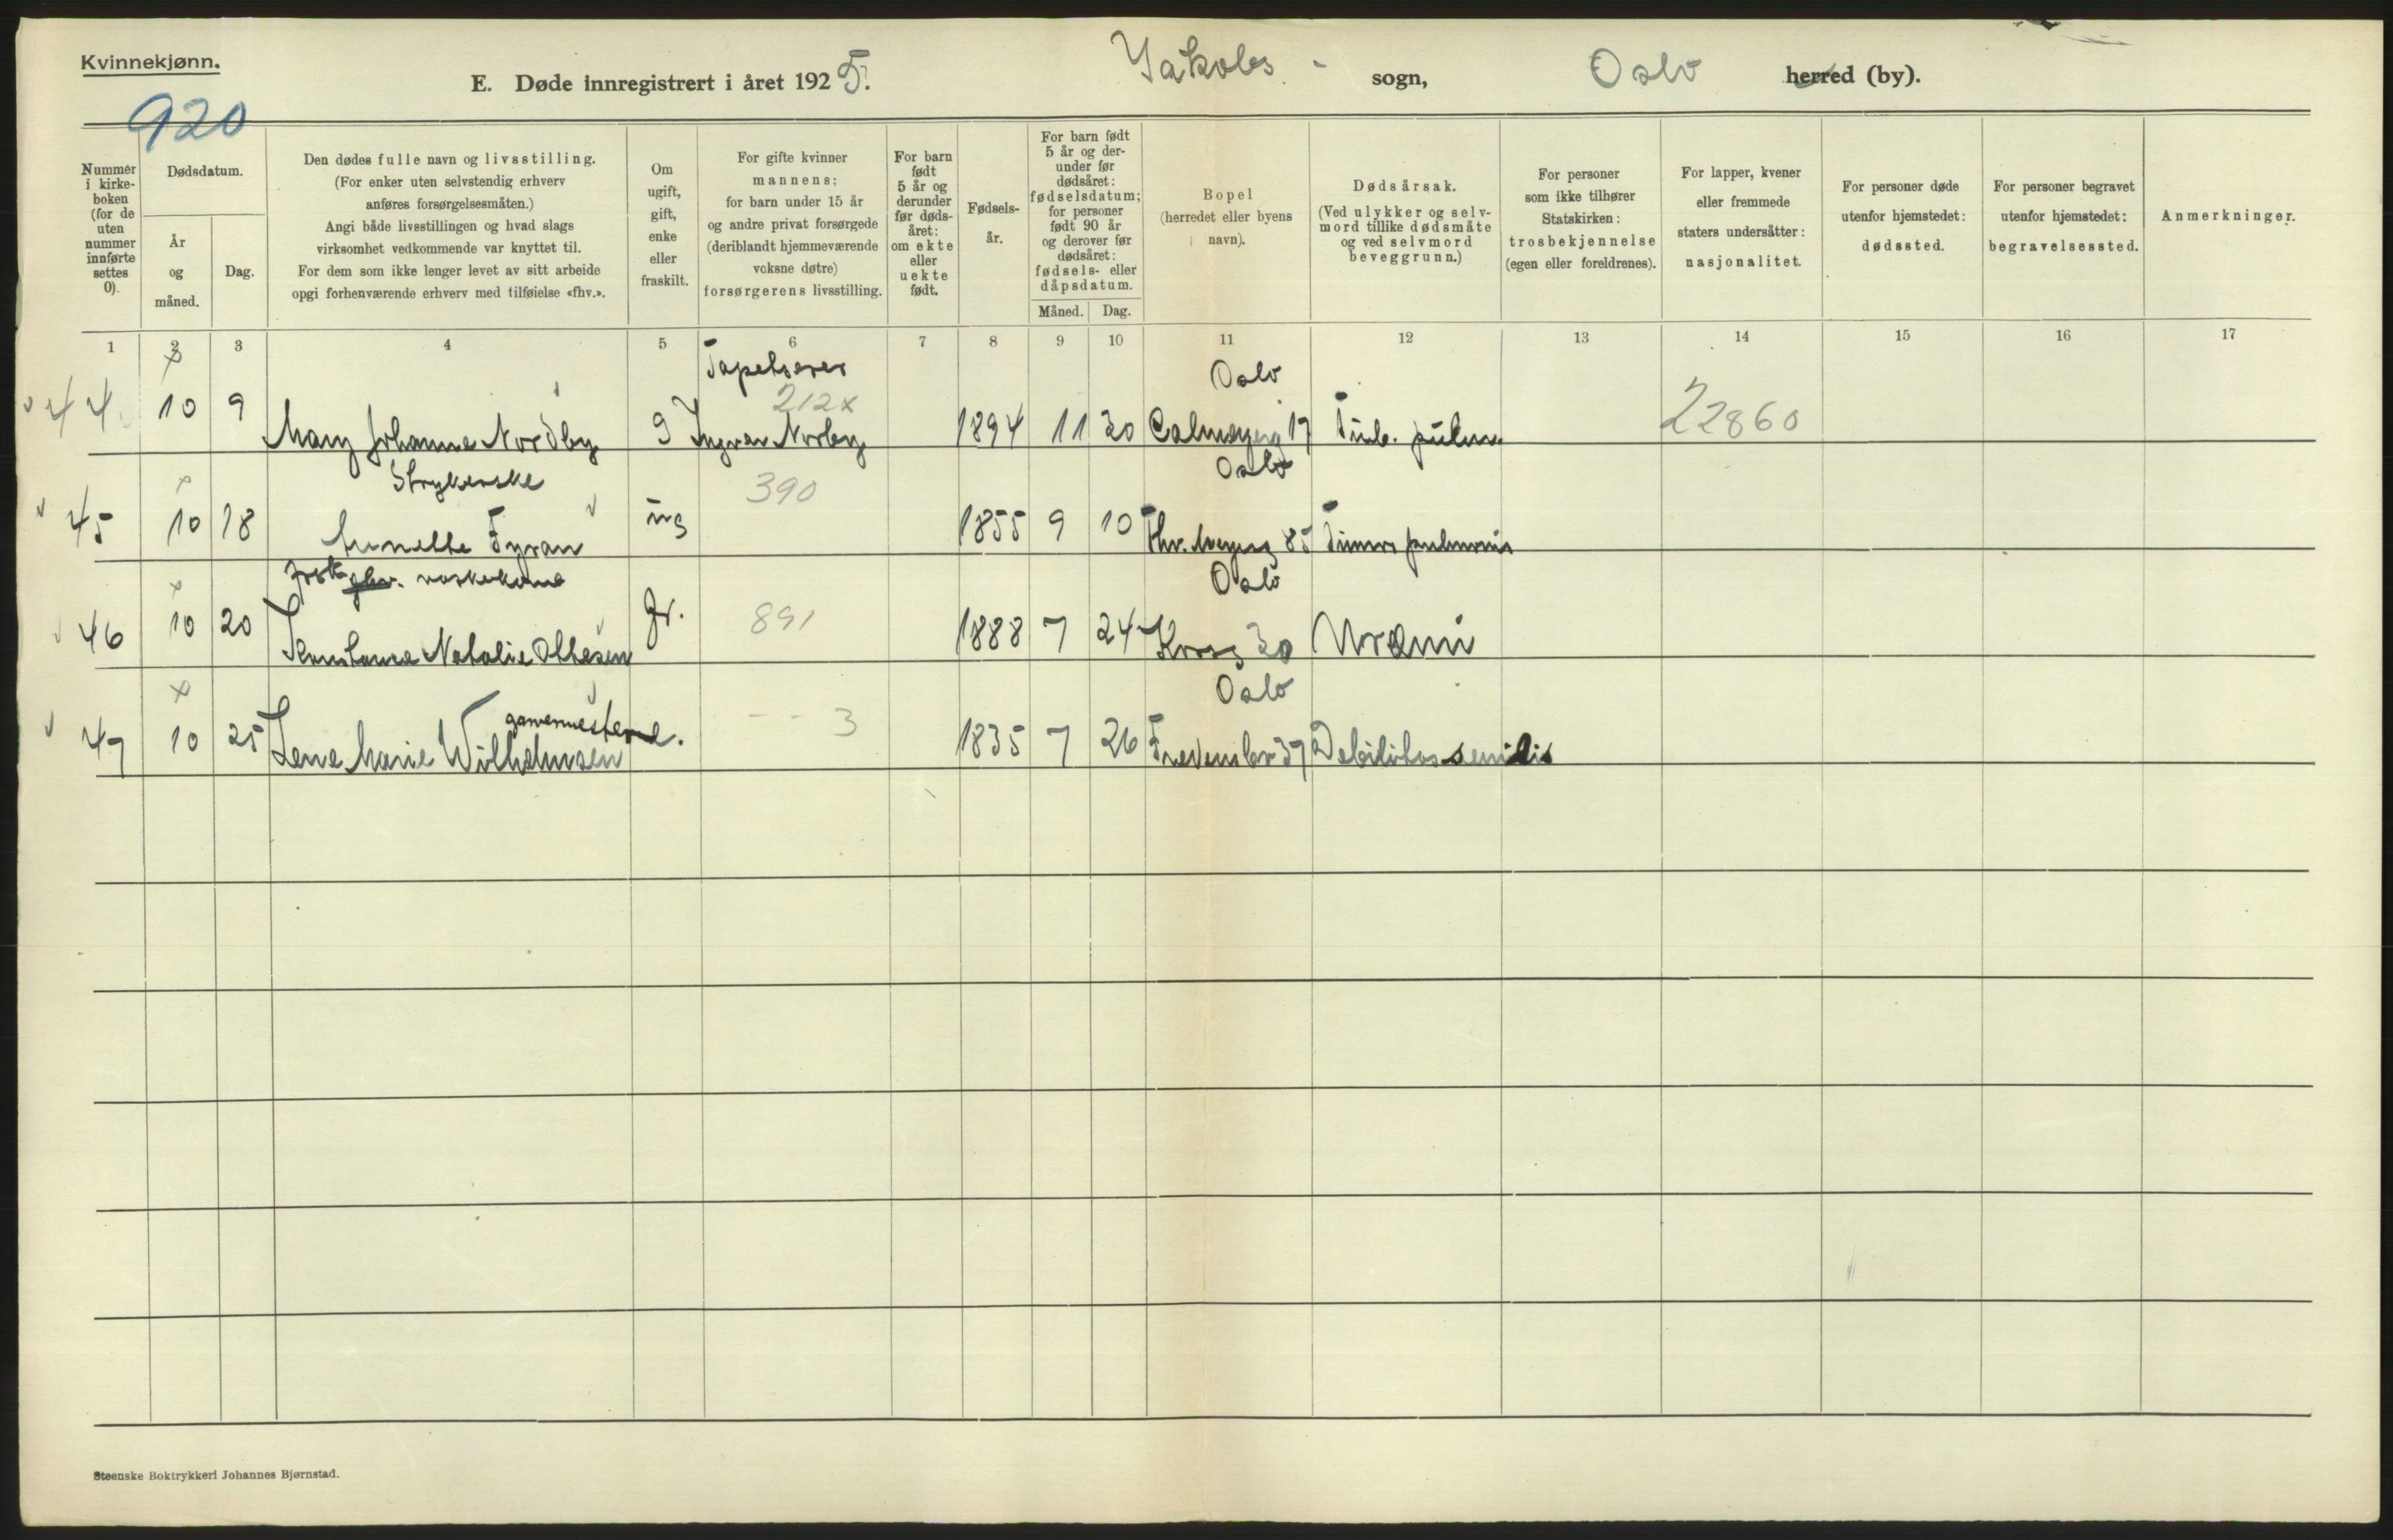 Kvinnekjønn.
E. Døde innregistrert i året 1925. Jakobs - sogn, Oslo herred (by).
920
Nummer i kirke-boken (for de uten nummer innførte settes 0).
Dødsdatum.
År og måned.
Dag.
Den dødes fulle navn og livsstilling.
(For enker uten selvstendig erhverv
anføres forsørgelsesmåten.)
Angi både livsstillingen og hvad slags
virksomhet vedkommende var knyttet til.
For dem som ikke lenger levet av sitt arbeide
opgi forhenværende erhverv med tilføielse «fhv.».
Om ugift, gift, enke eller fraskilt.
For gifte kvinner
mannens;
for barn under 15 år
og andre privat forsørgede
(deriblandt hjemmeværende
voksne døtre)
forsørgerens livsstilling.
For barn født 5 år og derunder før døds-året: om ekte eller uekte født.
Fødsels-år.
For barn født
5 år og der-
under før
dødsåret:
fødselsdatum;
for personer
født 90 år
og derover før
dødsåret:
fødsels- eller
dåpsdatum.
Måned. Dag.
Bopel
(herredet eller byens
navn).
Dødsårsak.
(Ved ulykker og selv-
mord tillike dødsmåte
og ved selvmord
beveggrunn.)
For personer
som ikke tilhører
Statskirken:
trosbekjennelse
(egen eller foreldrenes).
For lapper, kvener
eller fremmede
staters undersåtter:
nasjonalitet.
For personer døde
utenfor hjemstedet:
dødssted.
For personer begravet
utenfor hjemstedet:
begravelsessted.
Anmerkninger.
1 2 3 4 5 6 7 8 9 10 11 12 13 14 15 16 17
Tapetserer Oslo
212x
44 10 9 Mary Johanne Nordby g Yngvar Norby 1894 11 30 Calmeyerg 17 Tub. pulm. 22860
Strykerske 390 Oslo
45 10 18 Annette Fyran ug 1855 9 10 Thv. Meyersg 85 Tumor pulmonis
frsk. fhv. vaskekone Oslo
46 10 20 Konstance Natalie Olhesen gr. 891 1888 7 24 Korsg 30 Uræmi
Oslo
garvermester e.
47 10 25 Lene Marie Wilhelmsen -- 3 1835 7 26 Fredensbor 37 Debilitas senilis
Steenske Boktrykkeri Johannes Bjørnstad.